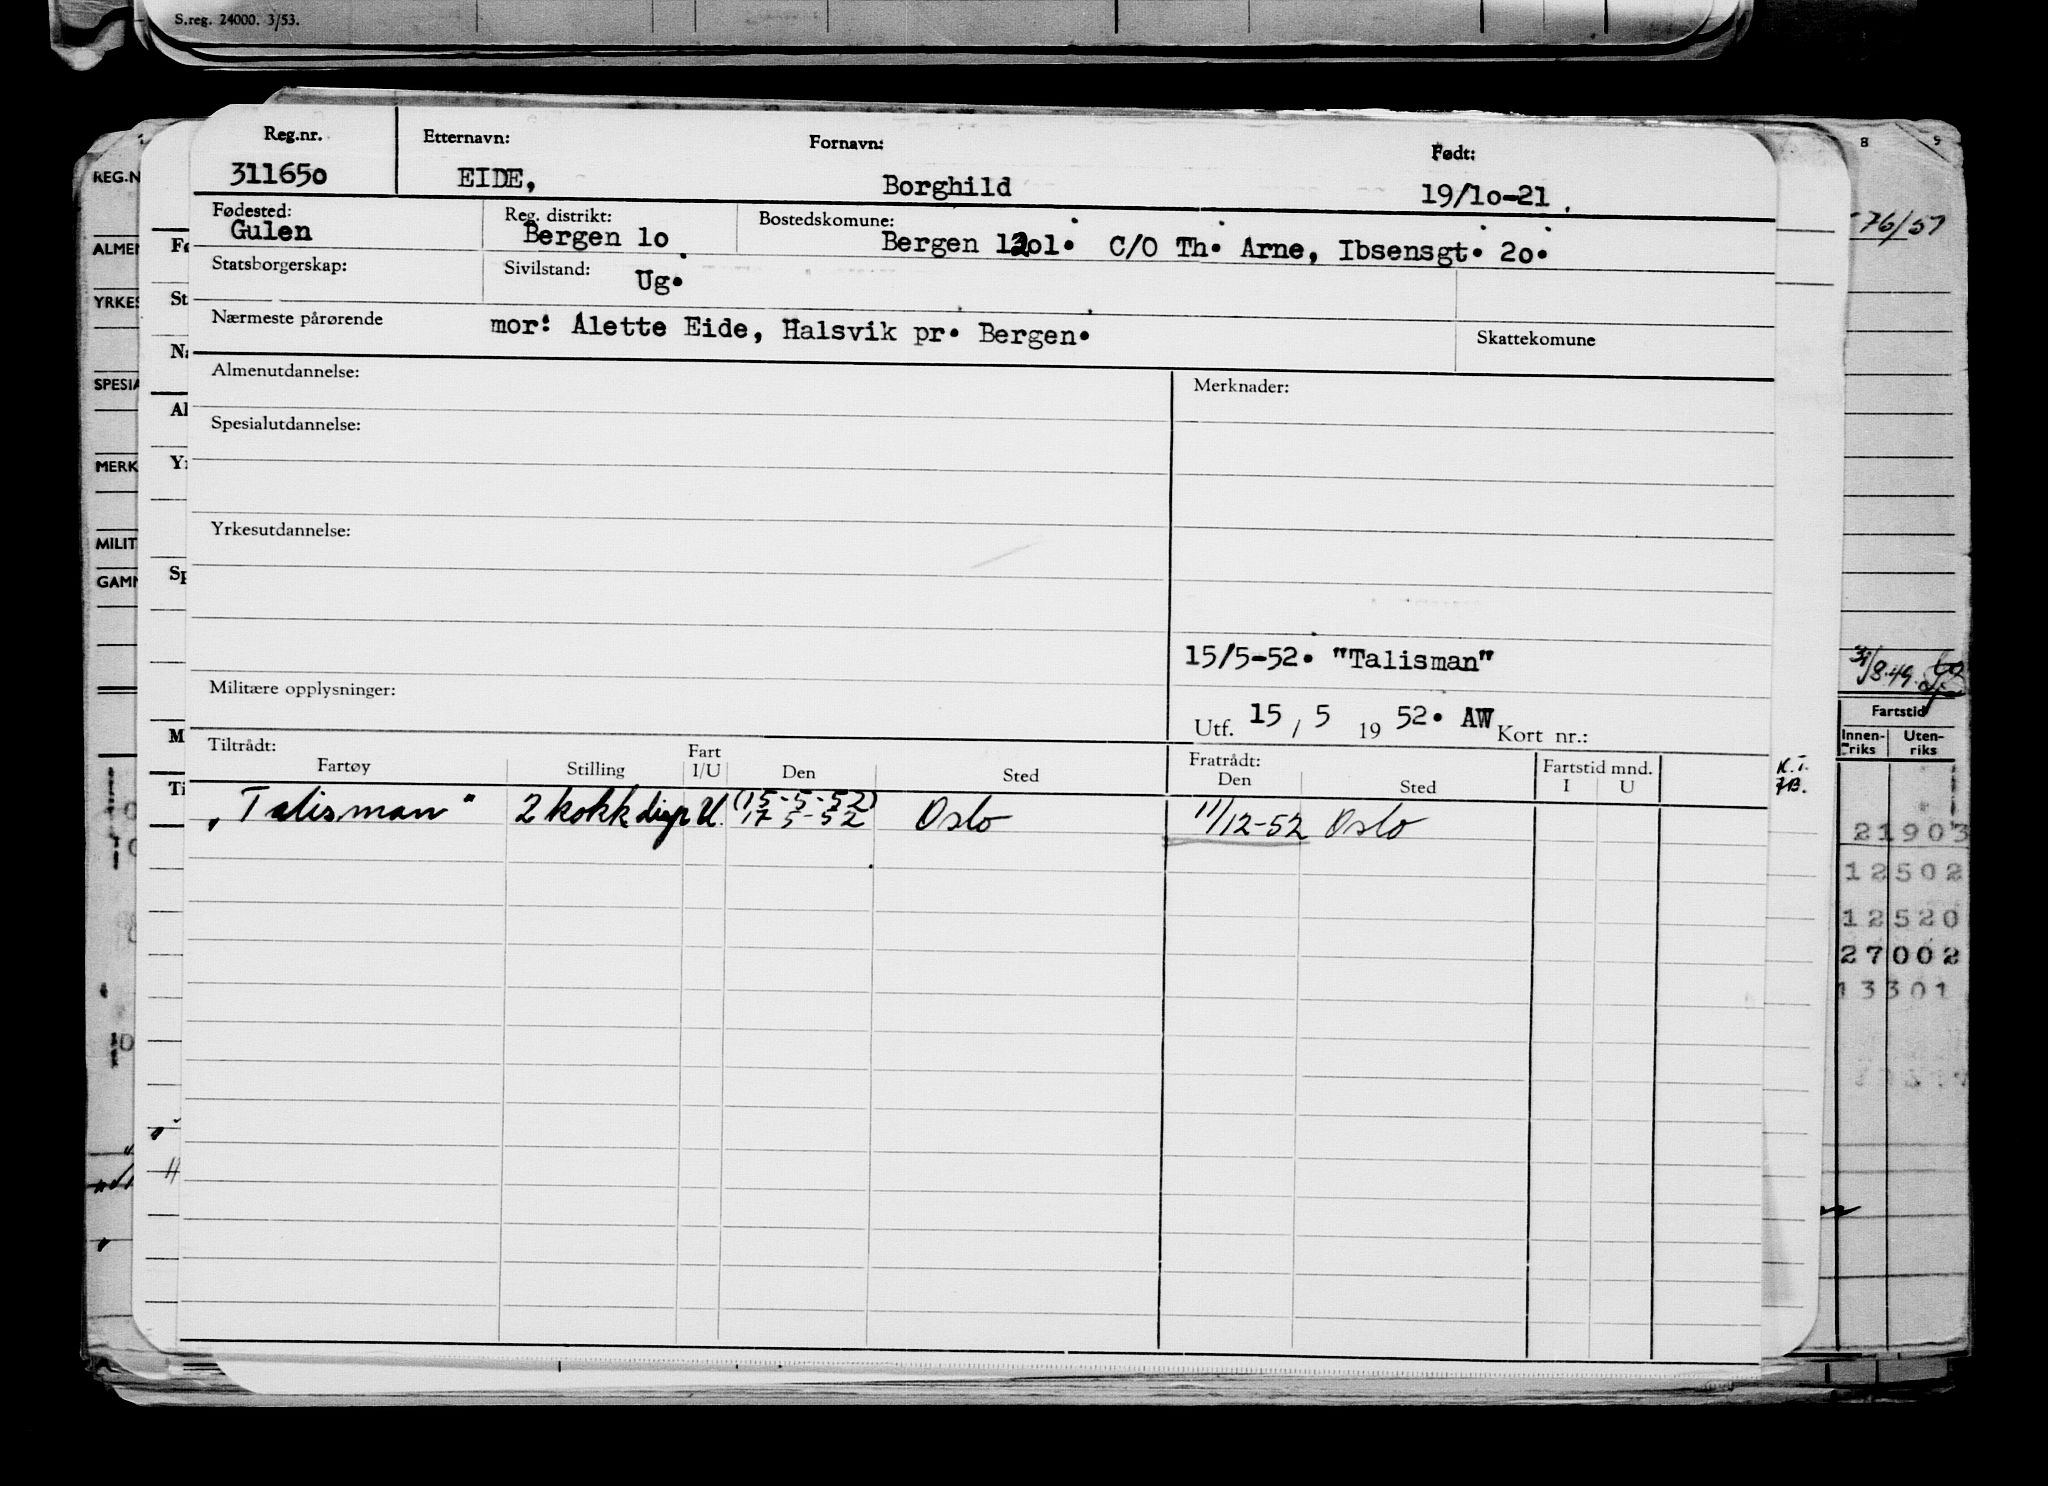 S.reg. 24000. 3/53.
Reg.nr. Etternavn: Fornavn: Født:
311650 EIDE, Borghild 19/10-21.
Fødested: Reg. distrikt: Bostedskomune:
Gulen Bergen 10 Bergen 1201. C/O Th. Arne, Ibsensgt. 20.
Statsborgerskap: Sivilstand: Ug.
Nærmeste pårørende mor: Alette Eide, Halsvik pr. Bergen. Skattekomune
Almenutdannelse: Merknader:
Spesialutdannelse:
Yrkesutdannelse:
15/5-52. "Talisman"
Militære opplysninger:
Utf. 15 / 5 19 52. AW Kort nr.:
Tiltrådt: Fratrådt:
Fartøy Stilling Fart I/U Den Sted Den Sted Fartstid mnd. I U
"Talisman" 2 kokk disp U. (15-5-52) 17 5-52 Oslo 11/12-52 Oslo
REG.N
ALMEN
YRKES
SPESIA
MERK
MILIT
GAMM
Fø
St
Na
Al
Yr
Sp
M
Ti
8 9
76/57
31/8.49.
Fartstid
Innen-riks Uten-riks
K.T.
7B.
21903
12502
12520
27002
13301